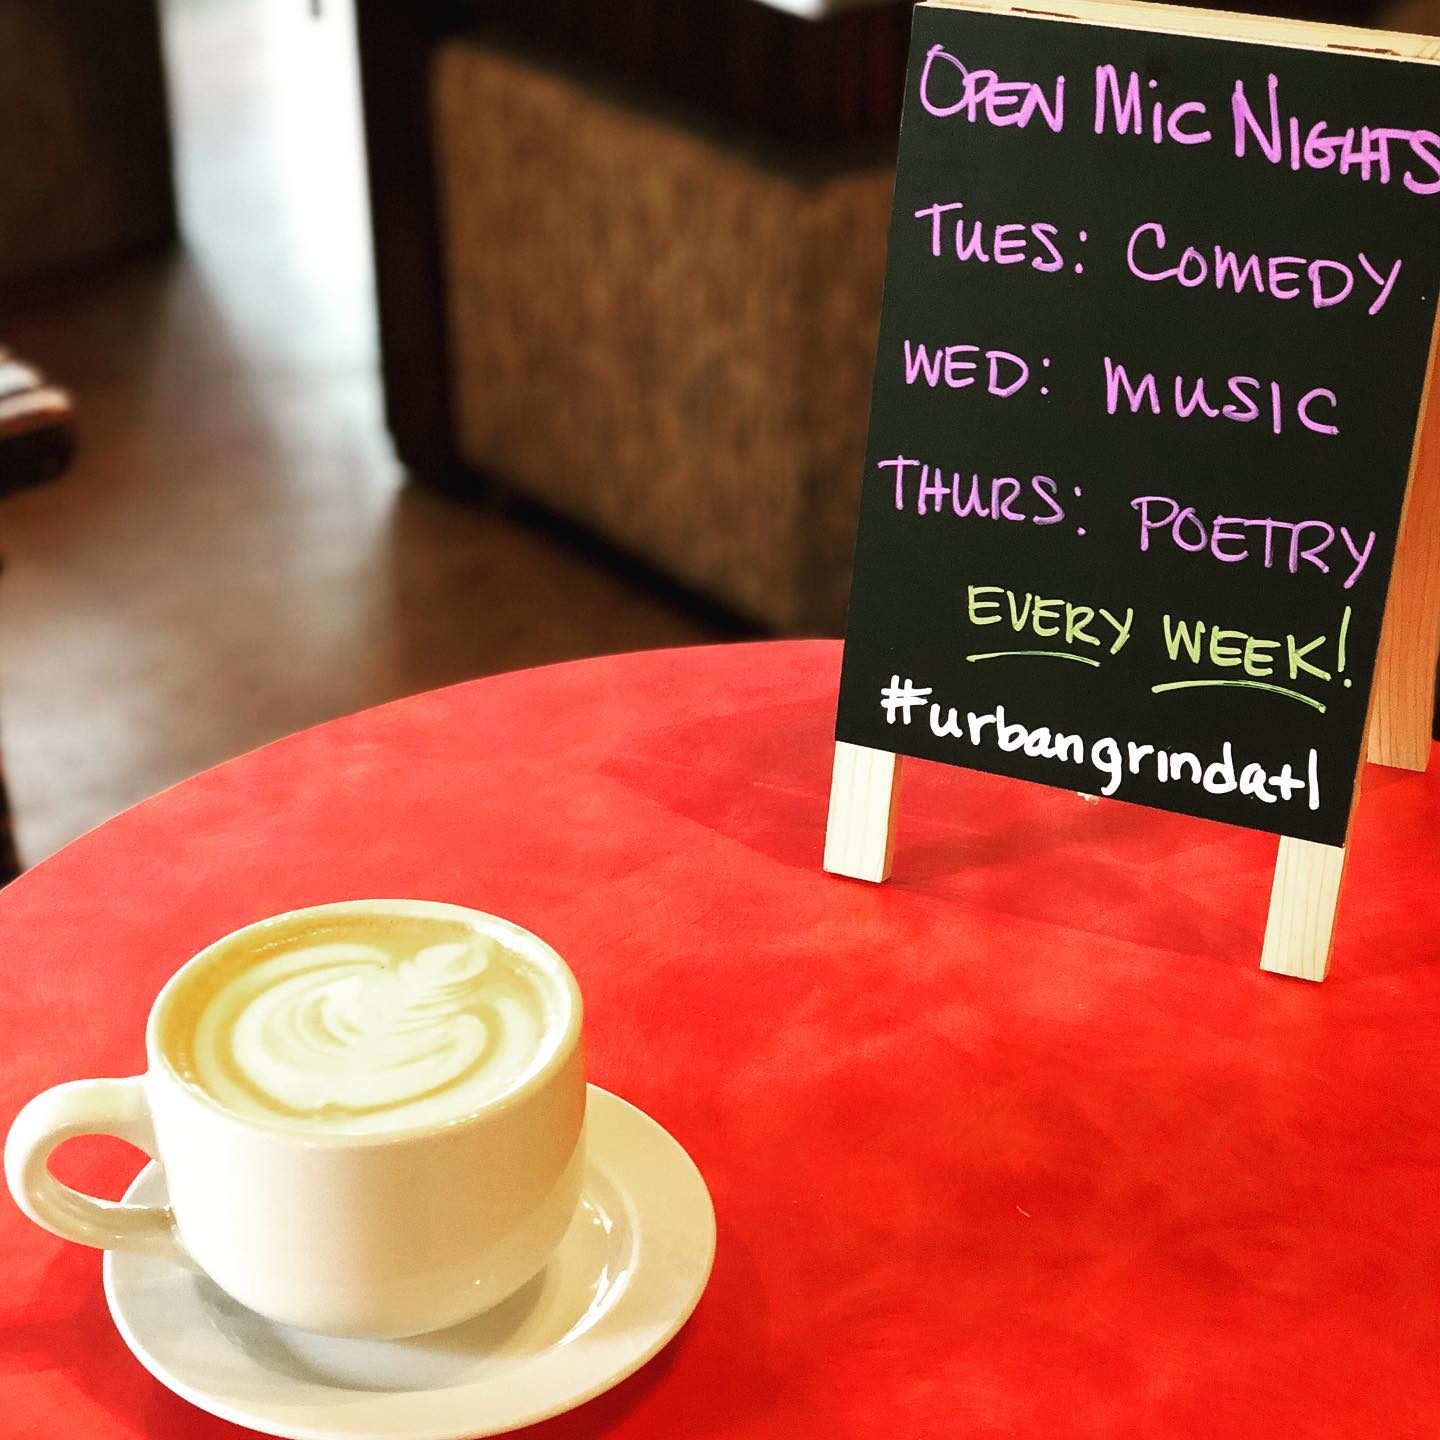 OPEN MIC NIGHTS
TUES: COMEDY
WED: MUSIC
THURS: POETRY
EVERY WEEK!
#urbangrindatl